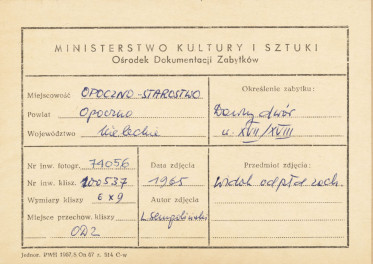 MINISTERSTWO KULTURY I SZTUKI
Ośrodek Dokumentacji Zabytków
Miejscowość OPOCZNO-STAROSTWO
Powiat Opoczno
Województwo kieleckie
Określenie zabytku:
Dawny dwór
w. XVII/XVIII
Nr inw. fotogr. 74056
Nr inw. klisz. 100537
Wymiary kliszy 6x9
Miejsce przechow. kliszy
ODZ
Data zdjęcia
1965
Autor zdjęcia
Przedmiot zdjęcia:
widok od płd. zach.
Jednor. PWH 1967.5.Oz.67 z. 314 C-w